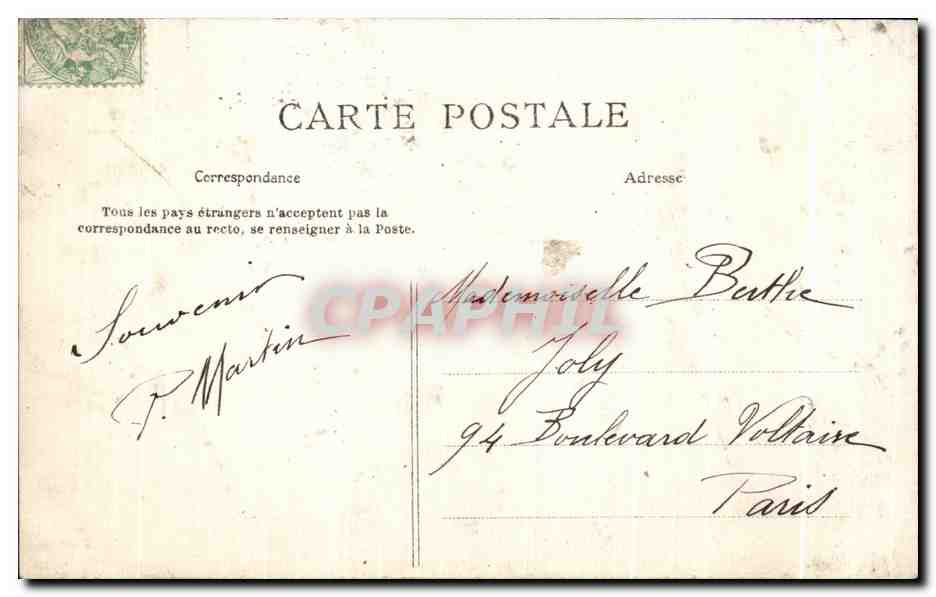 CARTE POSTALE
Correspondance
Adresse
Tous les pays étrangers n'acceptent pas la
correspondance au recto, se renseigner à la Poste.
Souvenir
P. Martin
CPAPHIL
Mademoiselle Berthe
Joly
94 Boulevard Voltaire
Paris